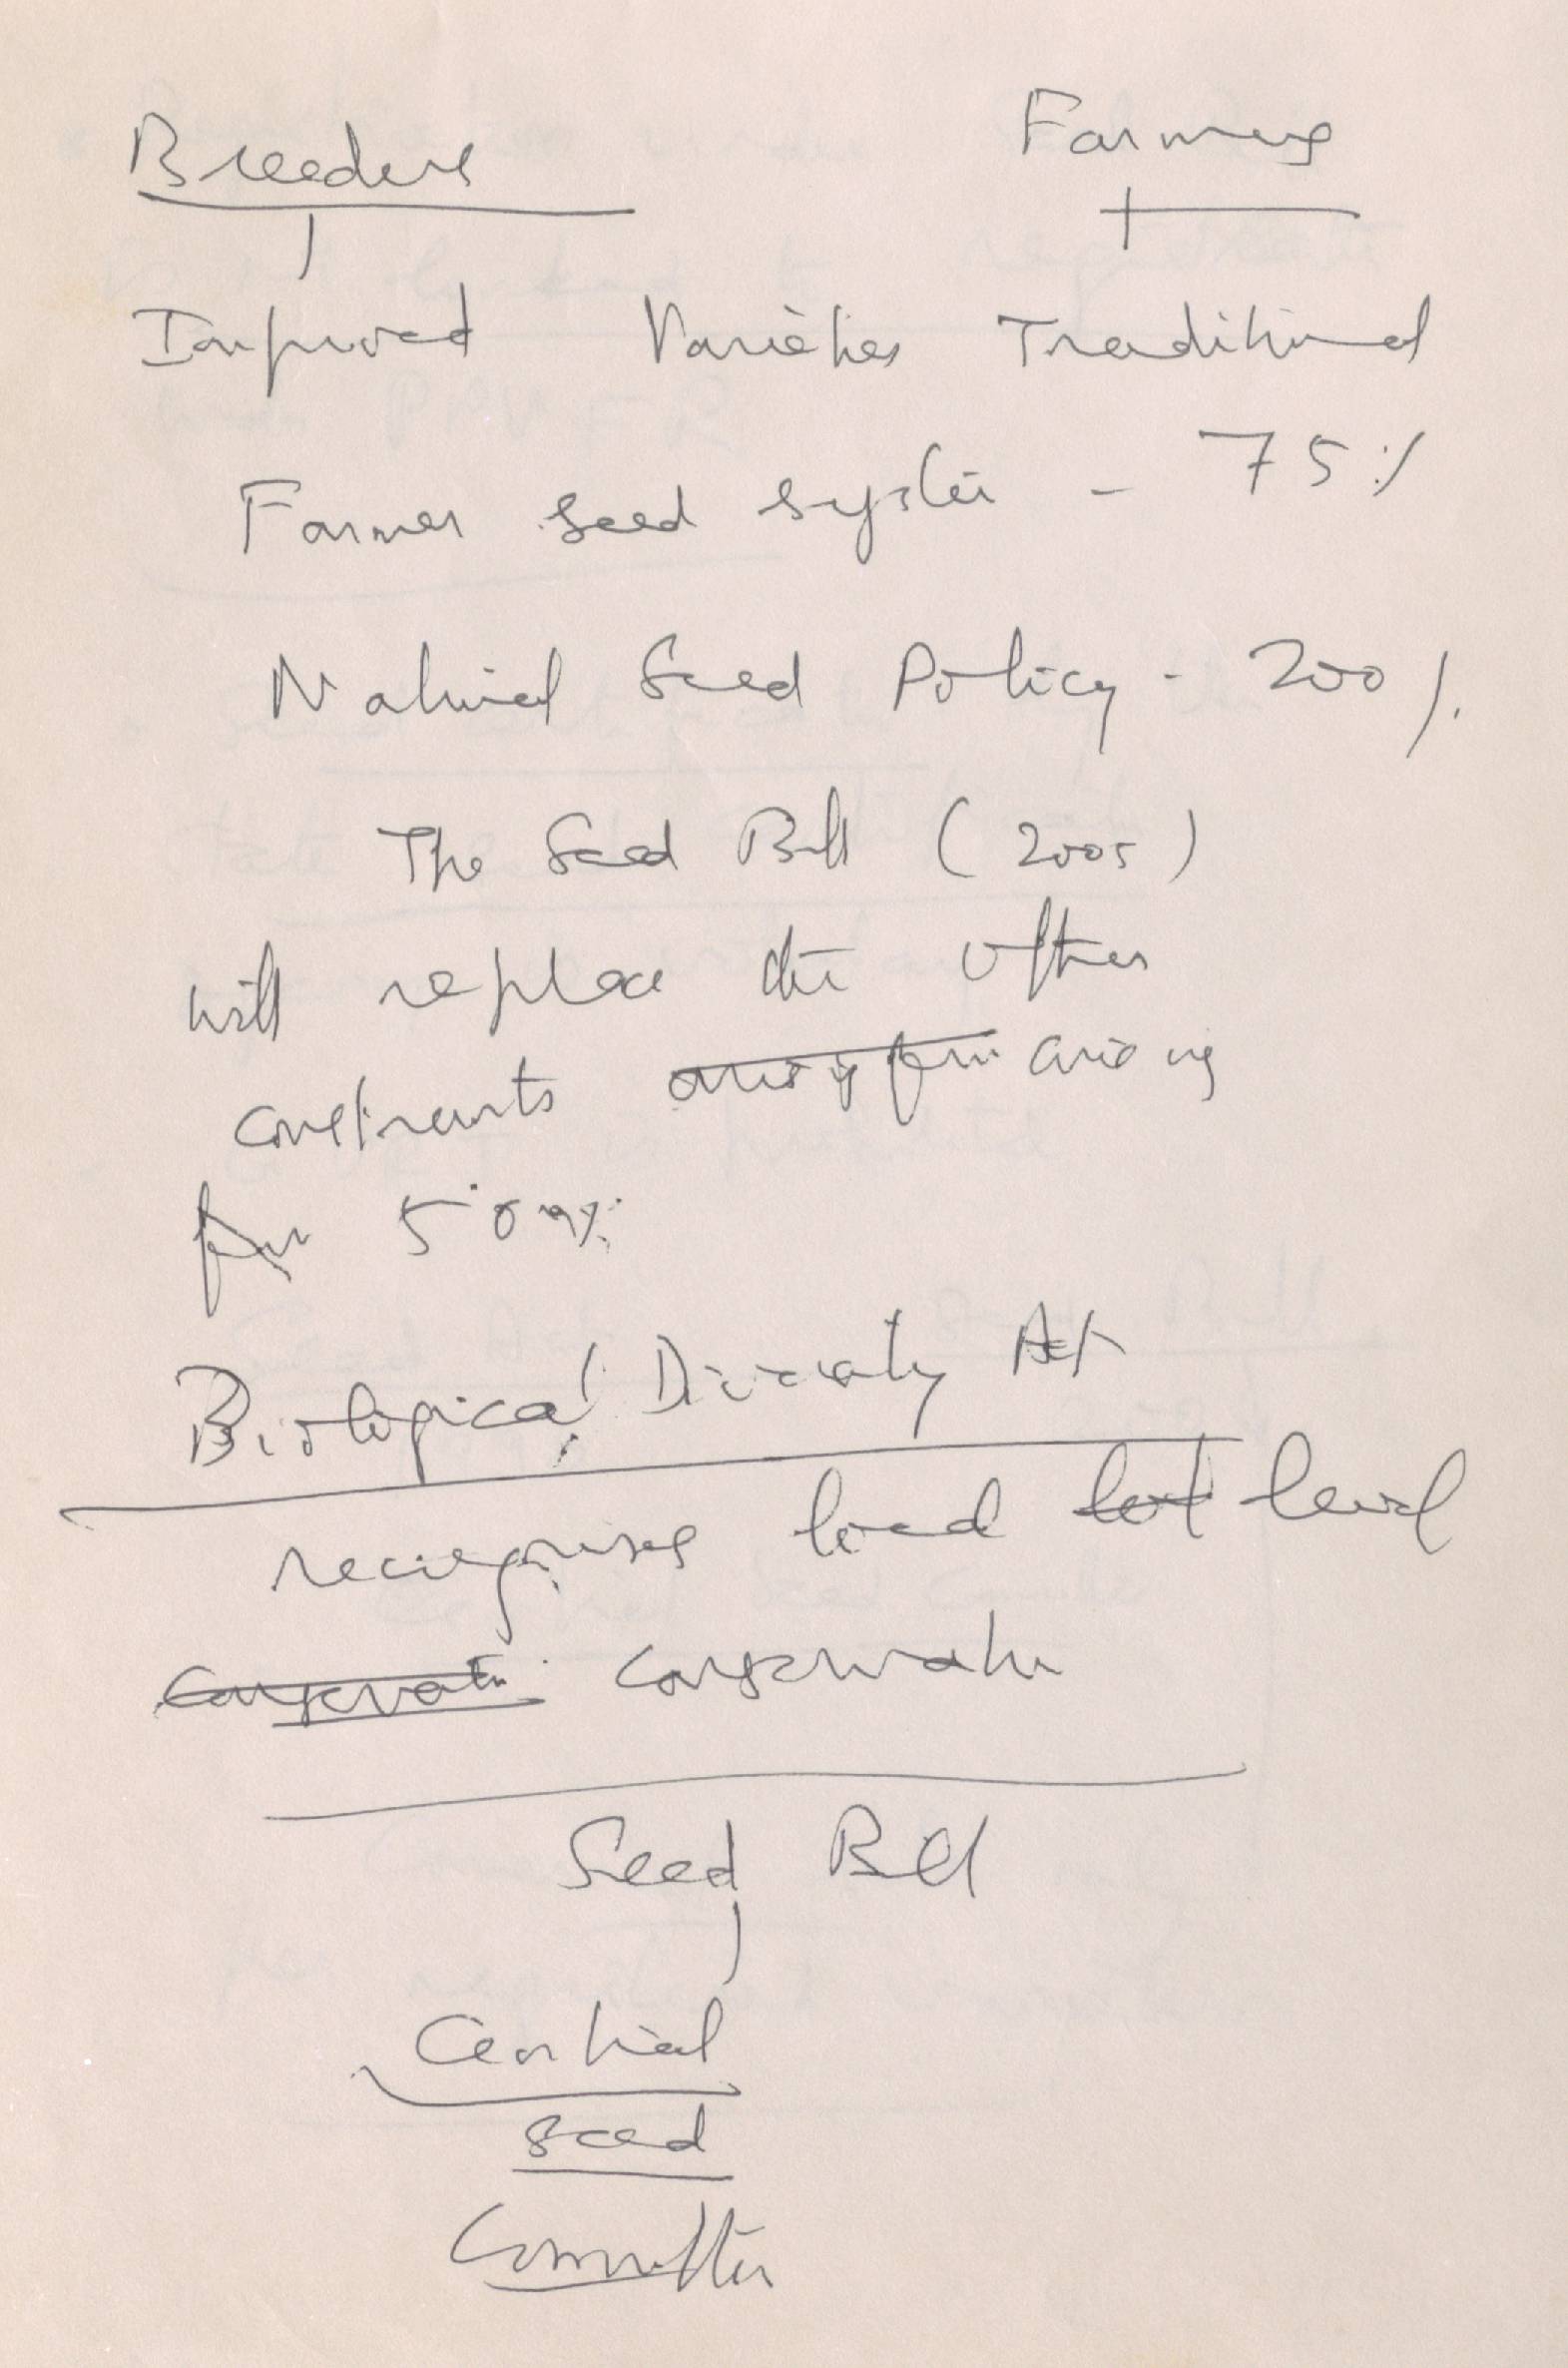 Breeders Farmers
Improved Varieties Traditional
Farmer seed system - 75%
National Seed Policy - 200
The Seed Bill (2005)
will replace the other
constraints arising from arising
from
Biological Diversity Act
recognises local level
Conservation Conservation
Seed Bill
Central
seed
Committee